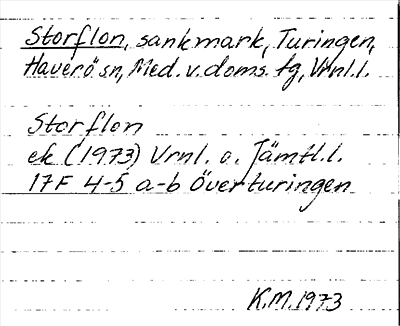 Storflon, sankmark, Turingen,
Haverö sn, Med. v. doms. tg, Vrnl.l.
Storflon
ek (1973) Vrnl. o. Jämtl.l.
17F 4-5 a-b Överturingen
K.M. 1973